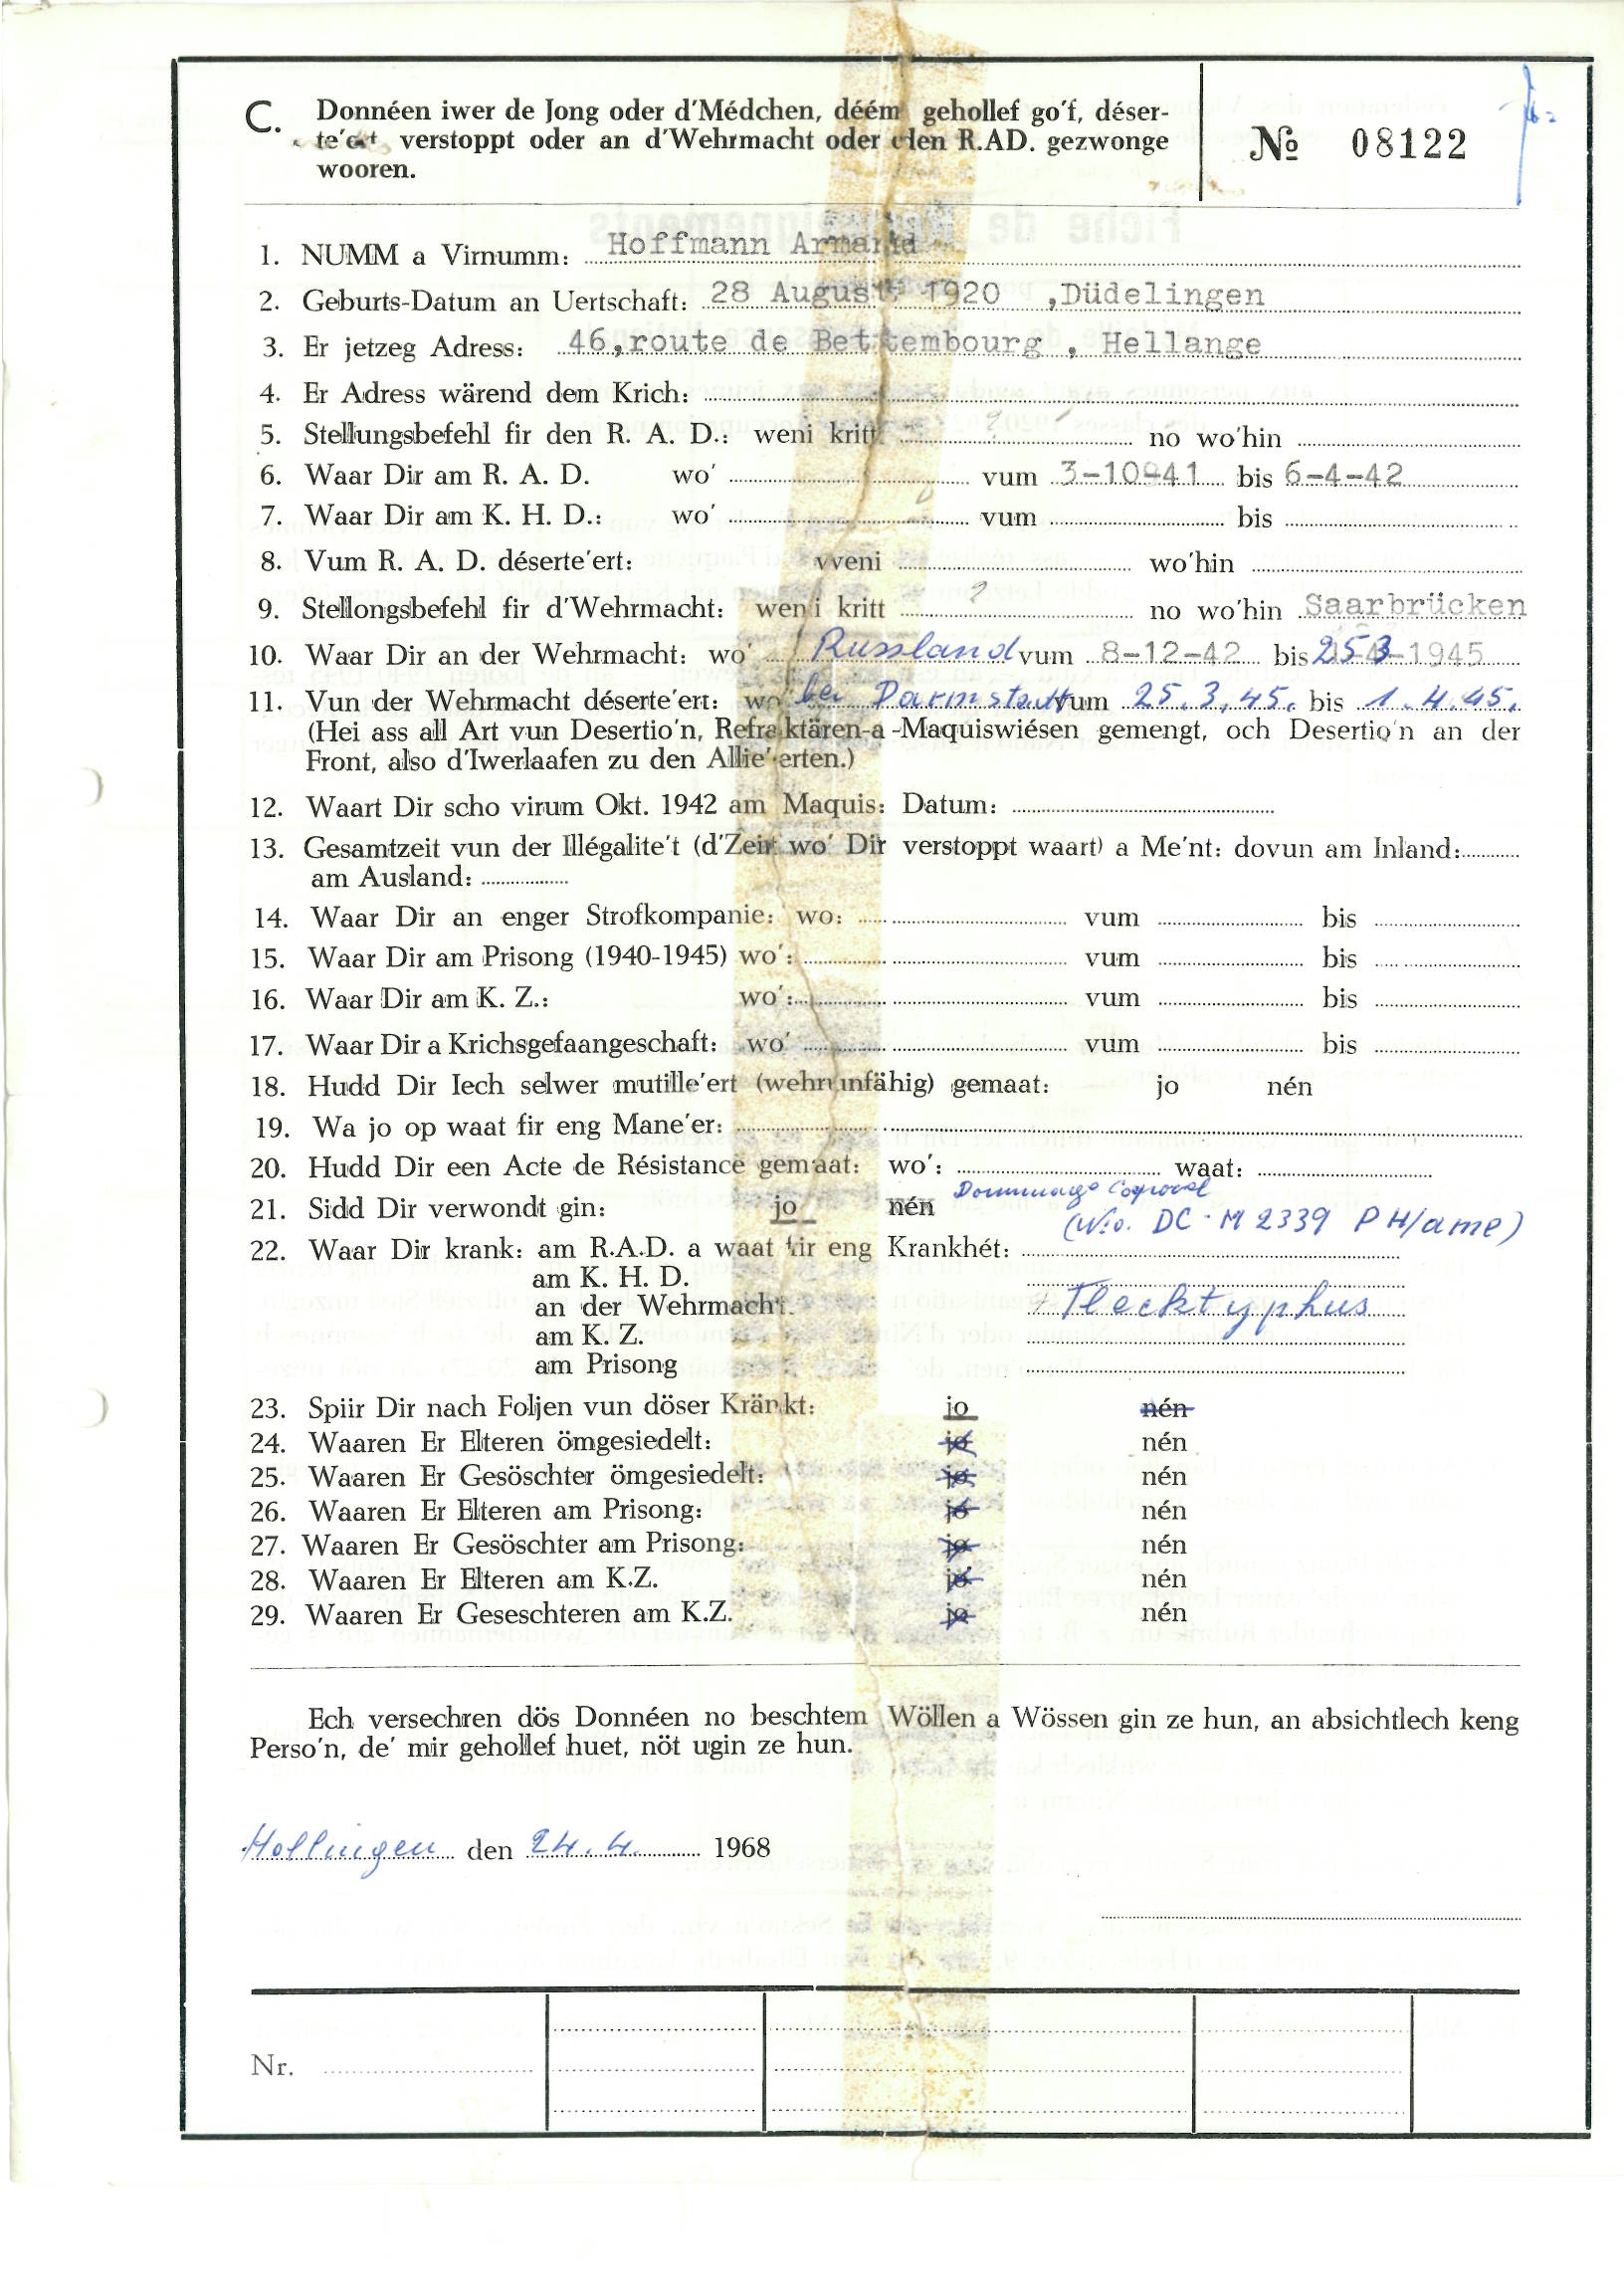 C. Donnéen iwer de Jong oder d'Médchen, déém gehollef go'f, déser-
te'ert verstoppt oder an d'Wehrmacht oder den R.AD. gezwonge
wooren.
№ 08122
1. NUMM a Virnumm: Hoffmann Armand
2. Geburts-Datum an Uertschaft: 28 August 1920 ,Düdelingen
3. Er jetzeg Adress: 46,route de Bettembourg , Hellange
4. Er Adress wärend dem Krich:
5. Stellungsbefehl fir den R. A. D.: weni kritt ? no wo'hin
6. Waar Dir am R. A. D. wo' vum 3-10-41 bis 6-4-42
7. Waar Dir am K. H. D.: wo' vum bis
8. Vum R. A. D. déserte'ert: weni wo'hin
9. Stellongsbefehl fir d'Wehrmacht: weni kritt ? no wo'hin Saarbrücken
10. Waar Dir an der Wehrmacht: wo' Russland vum 8-12-42 bis 25 3-1945
11. Vun der Wehrmacht déserte'ert: wo' bei Darmstadt vum 25.3.45. bis 1.4.45.
(Hei ass all Art vun Desertio'n, Refraktären-a -Maquiswiésen gemengt, och Desertio'n an der
Front, also d'Iwerlaafen zu den Allie'erten.)
12. Waart Dir scho virum Okt. 1942 am Maquis: Datum:
13. Gesamtzeit vun der Illégalite't (d'Zeit wo' Dir verstoppt waart) a Me'nt: dovun am Inland:
am Ausland:
14. Waar Dir an enger Strofkompanie: wo: vum bis
15. Waar Dir am Prisong (1940-1945) wo': vum bis
16. Waar Dir am K. Z.: wo': vum bis
17. Waar Dir a Krichsgefaangeschaft: wo' vum bis
18. Hudd Dir Iech selwer mutille'ert (wehrunfähig) gemaat: jo nén
19. Wa jo op waat fir eng Mane'er:
20. Hudd Dir een Acte de Résistance gemaat: wo': waat:
21. Sidd Dir verwondt gin: jo nén Dommage Corporel
(No. DC-M 2339 PH/ame)
22. Waar Dir krank: am R.A.D. a waat fir eng Krankhét:
am K. H. D.
an der Wehrmacht. Flecktyphus
am K. Z.
am Prisong
23. Spiir Dir nach Foljen vun döser Kränkt: jo nén
24. Waaren Er Elteren ömgesiedelt: jo nén
25. Waaren Er Gesöschter ömgesiedelt: jo nén
26. Waaren Er Elteren am Prisong: jo nén
27. Waaren Er Gesöschter am Prisong: jo nén
28. Waaren Er Elteren am K.Z. jo nén
29. Waaren Er Geseschteren am K.Z. jo nén
Ech versechren dös Donnéen no beschtem Wöllen a Wössen gin ze hun, an absichtlech keng
Perso'n, de' mir gehollef huet, nöt ugin ze hun.
Hellingen den 24.4. 1968
Nr.